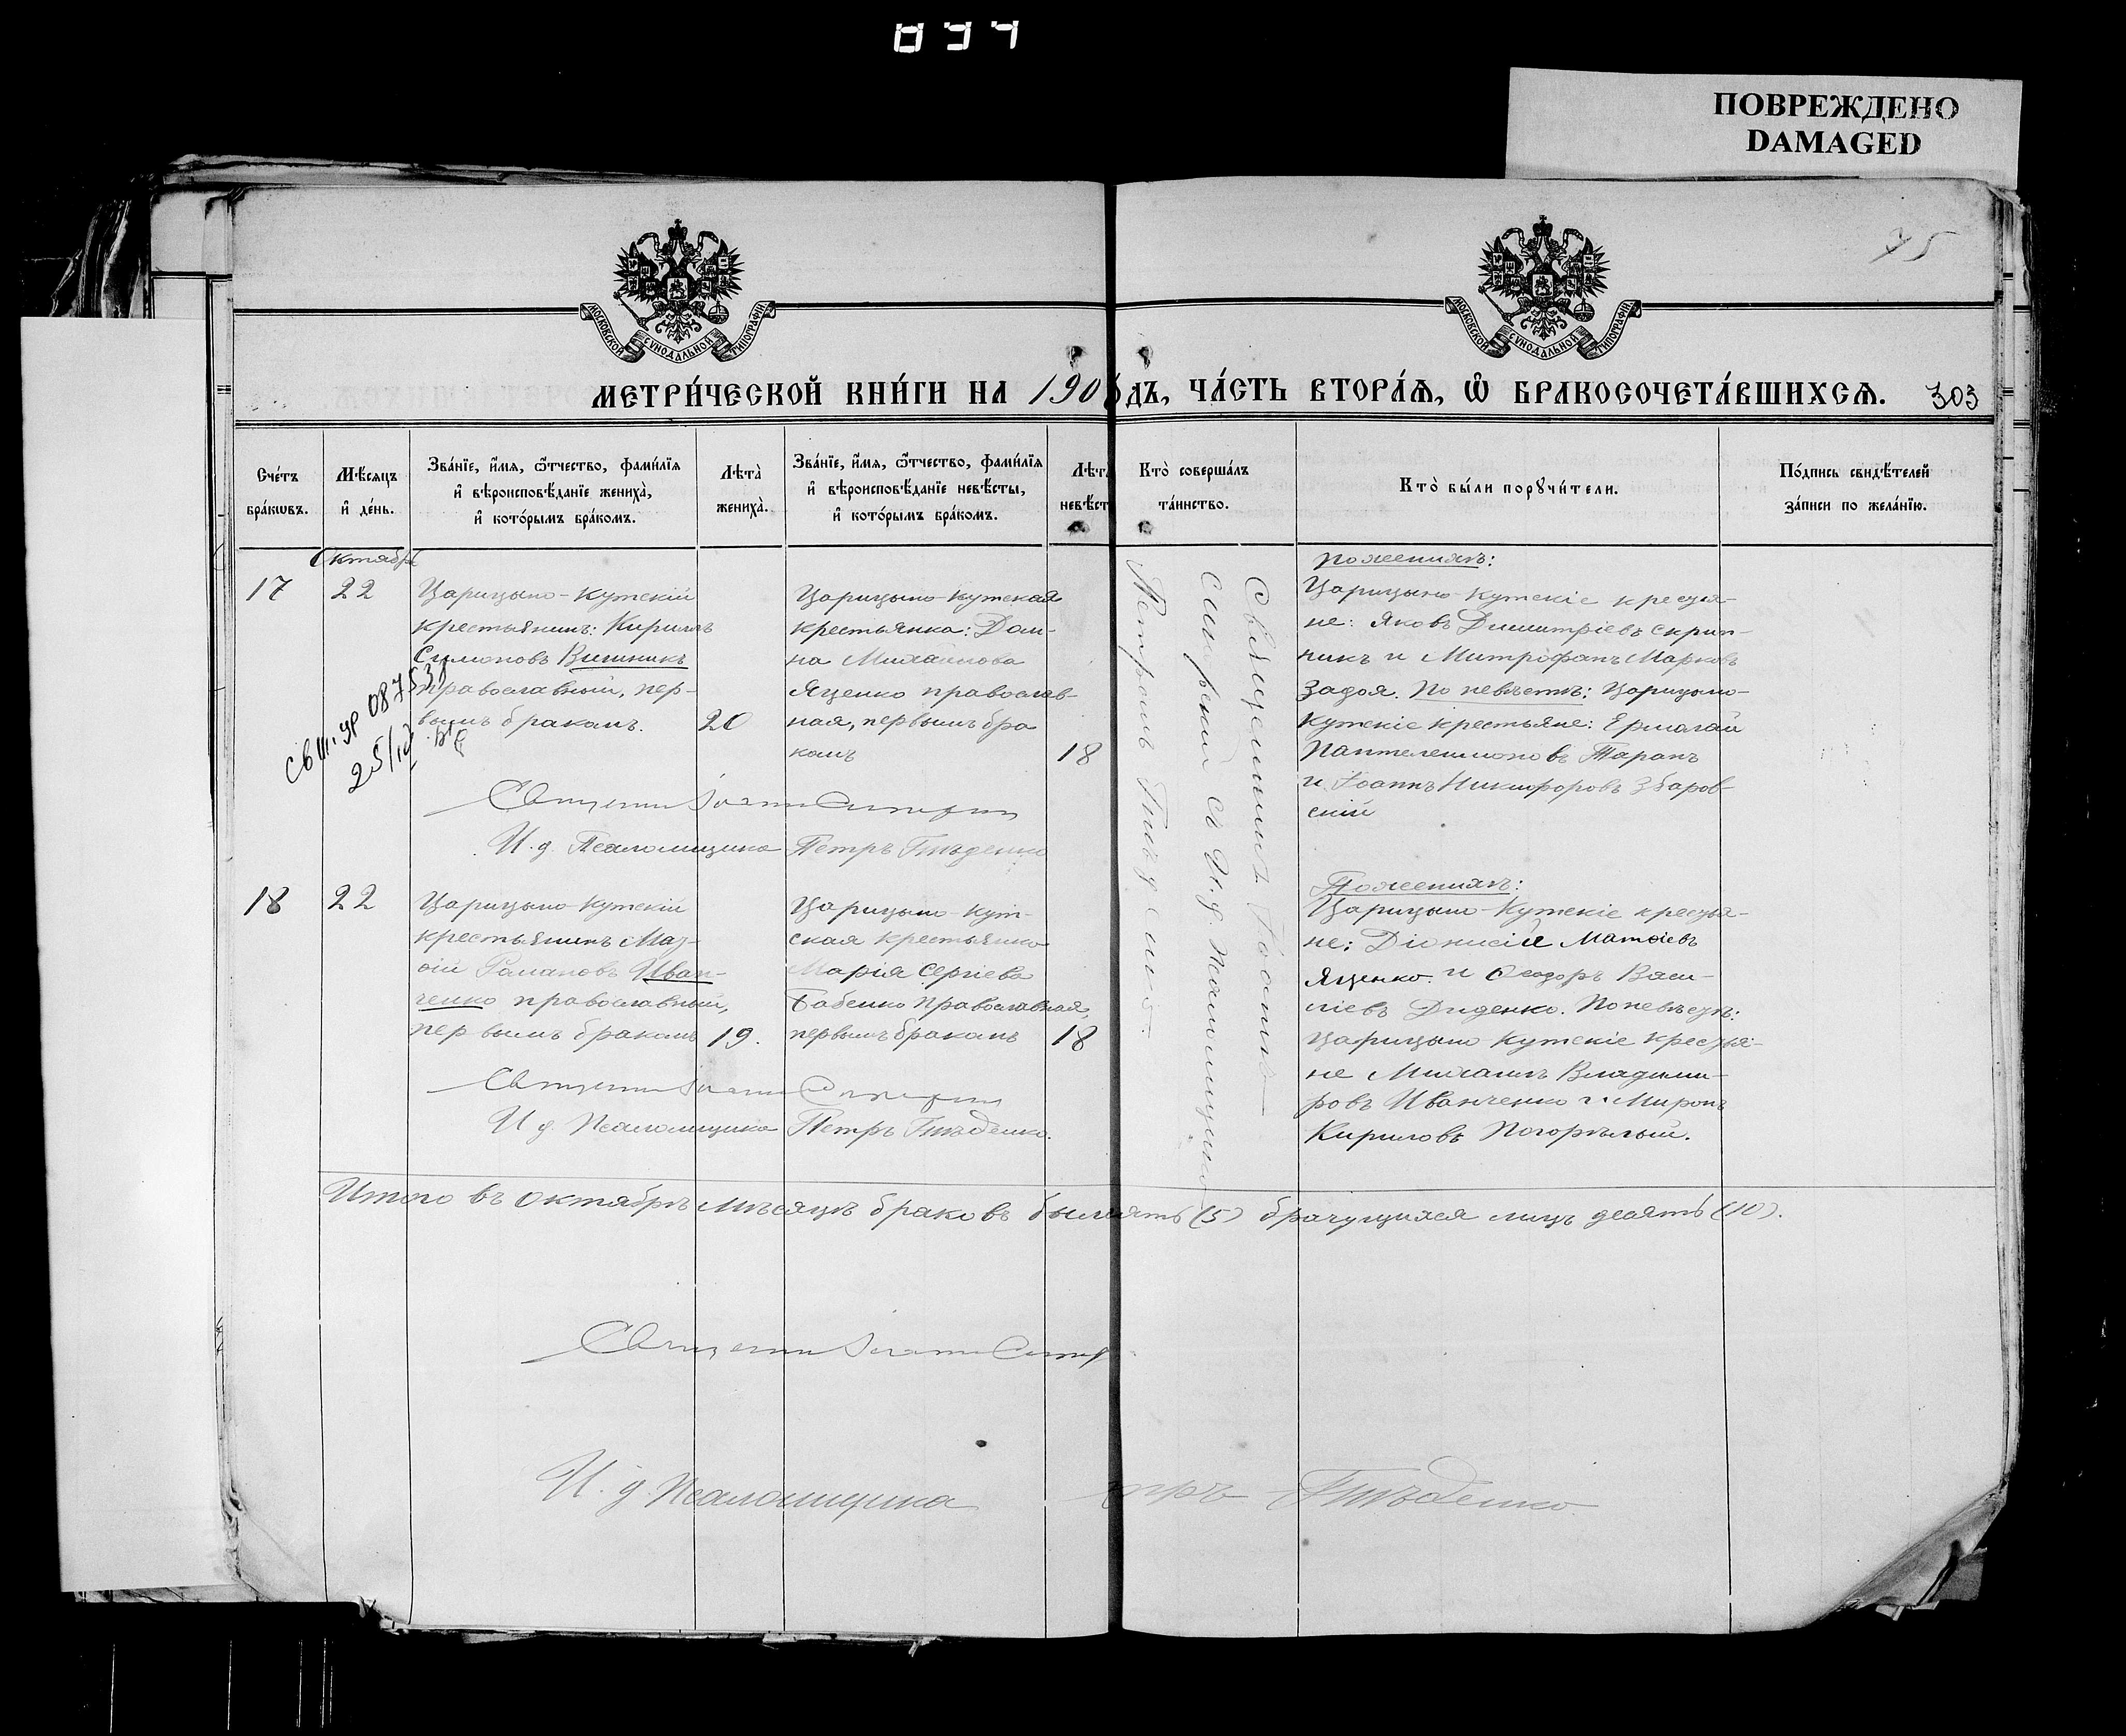 ПОВРЕЖДЕНО
DAMAGED
034
75
МОСКОВСКОЙ СУНОДАЛЬНОЙ ТИПОГРАФІИ
МОСКОВСКОЙ СУНОДАЛЬНОЙ ТИПОГРАФІИ
МЕТРИ́ЧЕСКОЙ КНИ́ГИ НА 190 дъ, ЧА́СТЬ ВТОРА́Я, Ѡ БРАКОСОЧЕТА́ВШИХСЯ. 303
Сче́тъ
бра́кѡвъ.
Мѣ́сяцъ
и҆ де́нь.
Зва́нїе, и҆́мя, ѻ҆́тчество, фами́лїя
и҆ вѣроисповѣ́данїе жениха̀,
и҆ кото́рымъ бра́комъ.
Лѣта̀
жениха̀.
Зва́нїе, и҆́мя, ѻ҆́тчество, фами́лїя
и҆ вѣроисповѣ́данїе невѣ́сты,
и҆ кото́рымъ бра́комъ.
Лѣта
невѣст
Кто̀ соверша́лъ
та́инство.
Кто̀ бы́ли порꙋчи́тели.
По́дпись свидѣ́телей
за́писи по жела́нїю.
Октября
17
22
Царицыно-Кутскій
крестьянинъ: Кириллъ
Симоновъ Вишникъ
православный, пер-
вымъ бракомъ.
20
Царицыно-Кутская
крестьянка: Дом-
на Михайлова
Яценко православ-
ная, первымъ бра
комъ
18
25/IV
Священникъ Іоаннъ
Петръ Гнѣденко.
По женихѣ:
Царицыно-Кутскіе крестья-
не: Яковъ Димитріевъ Скрип-
никъ и Митрофанъ Марковъ
Задоя. По невѣстѣ: Царицыно-
Кутскіе крестьяне: Ермолай
Пантелеимоновъ Таранъ
и Іоаннъ Никифоровъ Збаров-
скій
Священникъ Іоаннъ
И. д. Псаломщика Петръ Гнѣденко
18
22
Царицыно-Кутскій
крестьянинъ Мат-
ѳій Романовъ Иван-
ченко православный,
первымъ бракомъ
19.
Царицыно-Кут-
ская крестьянка
Марія Сергіева
Бабенко православная,
первымъ бракомъ
18
По женихѣ:
Царицыно-Кутскіе крестья-
не: Діонисій Матѳіевъ
Яценко и Ѳеодоръ Васи-
ліевъ Диденко. По невѣстѣ:
Царицыно-Кутскіе крестья-
не Михаилъ Владими-
ровъ Иванченко и Миронъ
Кириловъ Погорѣлый.
Священникъ Іоаннъ
И. д. Псаломщика Петръ Гнѣденко.
Итого въ октябрѣ мѣсяцѣ браковъ было пять (5) брачущихся лицъ десять (10).
Священникъ Іоаннъ
И. д. Псаломщика тръ Гнѣденко